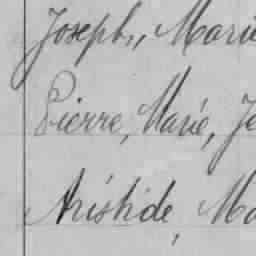 Joseph, Marie
Pierre, Marie, Jo
Aristide, Ma